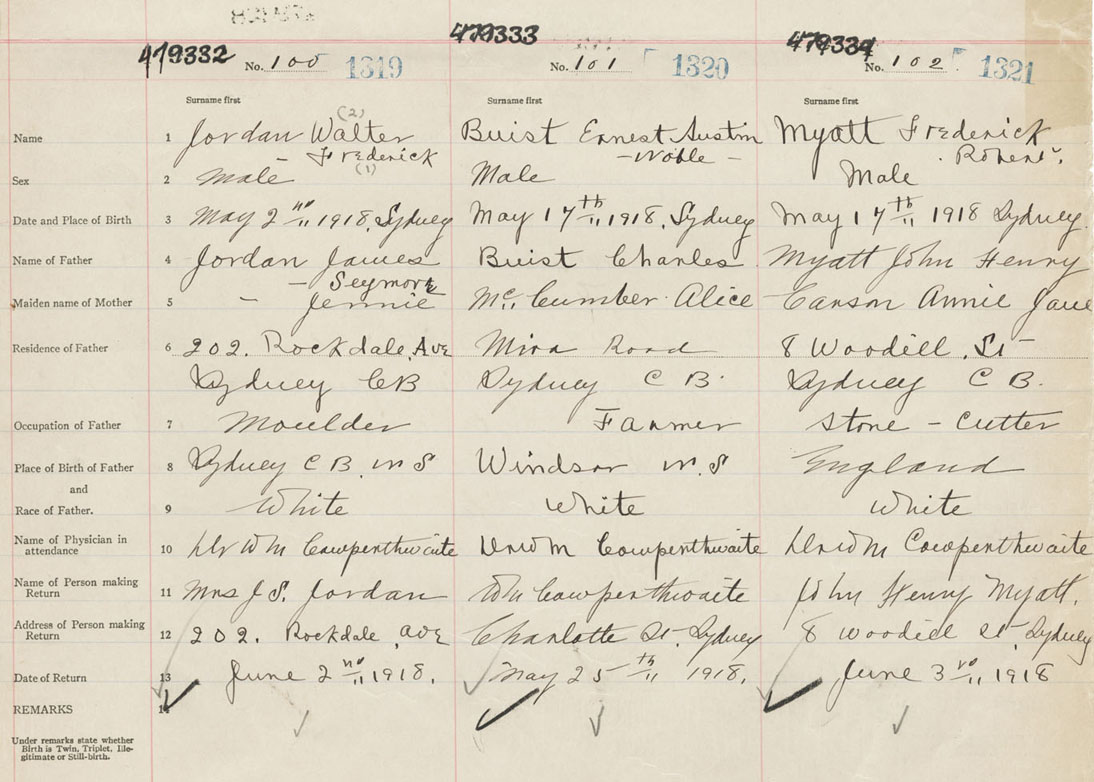 479332 479333 479334
No. 100 1319 No. 101 1320 No. 102 1321
Surname first Surname first Surname first
(2)
Name 1 Jordan Walter Buist Ernest Austin Myatt Frederick
Frederick - Noble - Robert
(1)
Sex 2 Male Male Male
Date and Place of Birth 3 May 2nd 1918, Sydney May 17th 1918, Sydney May 17th 1918 Sydney
Name of Father 4 Jordan James Buist Charles Myatt John Henry
- Seymore
Maiden name of Mother 5 - Jennie Mc Cumber Alice Carson Annie Jane
Residence of Father 6 202. Rockdale Ave Mira Road 8 Woodill St
Sydney CB Sydney C B. Sydney C B.
Occupation of Father 7 Moulder Farmer Stone - Cutter
Place of Birth of Father 8 Sydney C B. N S Windsor N. S England
and
Race of Father. 9 White White White
Name of Physician in
attendance 10 Dr Wm Cowperthwaite Dr Wm Cowperthwaite Dr Wm Cowperthwaite
Name of Person making
Return 11 Mrs J S. Jordan Wm Cowperthwaite John Henry Myatt.
Address of Person making
Return 12 202. Rockdale ave Charlotte St Sydney 8 Woodill St Sydney
Date of Return 13 June 2nd 1918. May 25th 1918. June 3rd 1918
REMARKS 14
Under remarks state whether
Birth is Twin, Triplet, Ille-
gitimate or Still-birth.